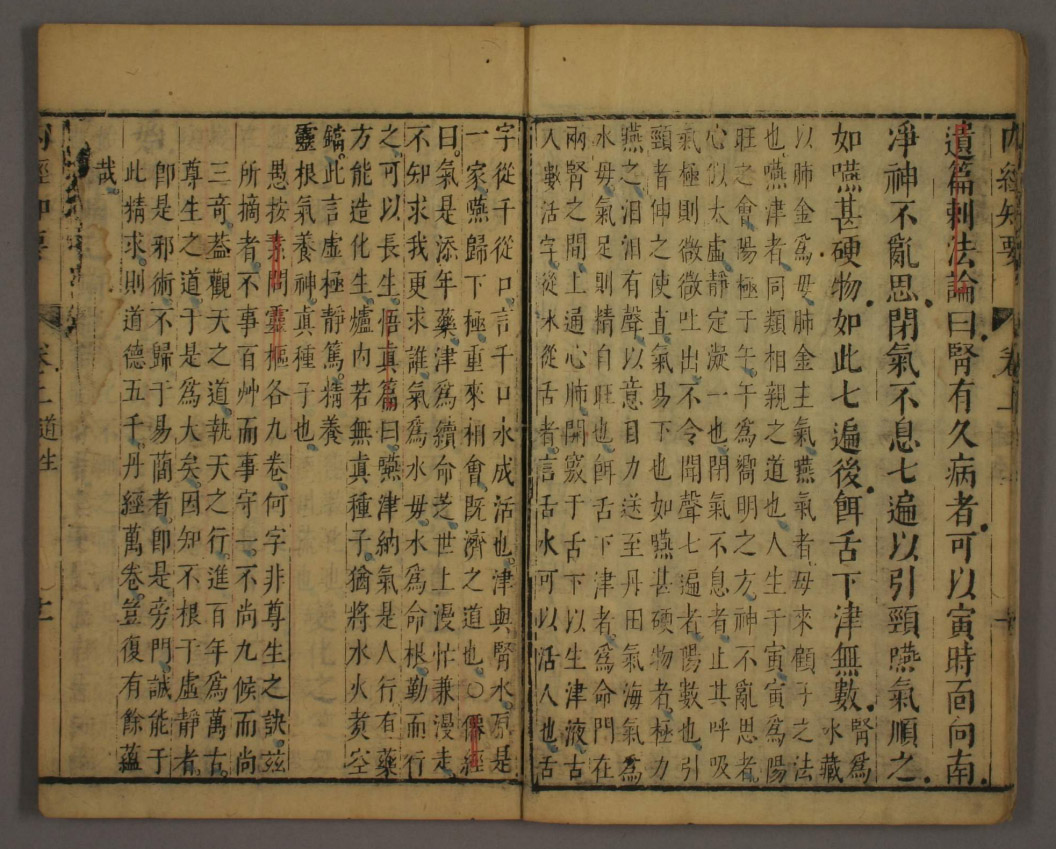 內經知要
卷上
遺篇刺法論曰腎有久病者可以寅時面向南
凈神不亂思閉氣不息七遍以引頸嚥氣順之
如嚥甚硬物如此七遍後餌舌下津無數腎爲水藏
以肺金爲母肺金主氣嚥氣者母來顧子之法
也嚥津者同類相親之道也人生于寅寅爲陽
旺之會陽極于午午爲嚮明之方神不亂思者
心似太虛靜定凝一也閉氣不息者止其呼吸
氣極則微微吐出不令聞聲七遍者陽數也引
頸者伸之使直氣易下也如嚥甚硬物者極力
嚥之汨汨有聲以意目力送至丹田氣海氣爲
水母氣足則精自旺也餌舌下津者爲命門在
兩腎之間上通心肺開竅于舌下以生津液古
人數活字從水從舌者言舌水可以活人也舌
字從千從口言千口水成活也津與腎水原是
一家嚥歸下極重來相會既濟之道也〇僊經
曰氣是添年藥津爲續命芝世上漫忙兼漫走
不知求我更求誰氣爲水母水爲命根勤而行
之可以長生悟眞篇曰嚥津納氣是人行有藥
方能造化生爐內若無眞種子猶將水火煑空
鐺此言虛極靜篤精養
靈根氣養神眞種子也
愚按素問靈樞各九卷何字非尊生之訣茲
所摘者不事百艸而事守一不尚九候而尚
三奇葢觀天之道執天之行進百年爲萬古
尊生之道于是爲大矣因知不根于虛靜者
卽是邪術不歸于易簡者卽是旁門誠能于
此精求則道德五千丹經萬卷豈復有餘蘊
哉
卷上道生